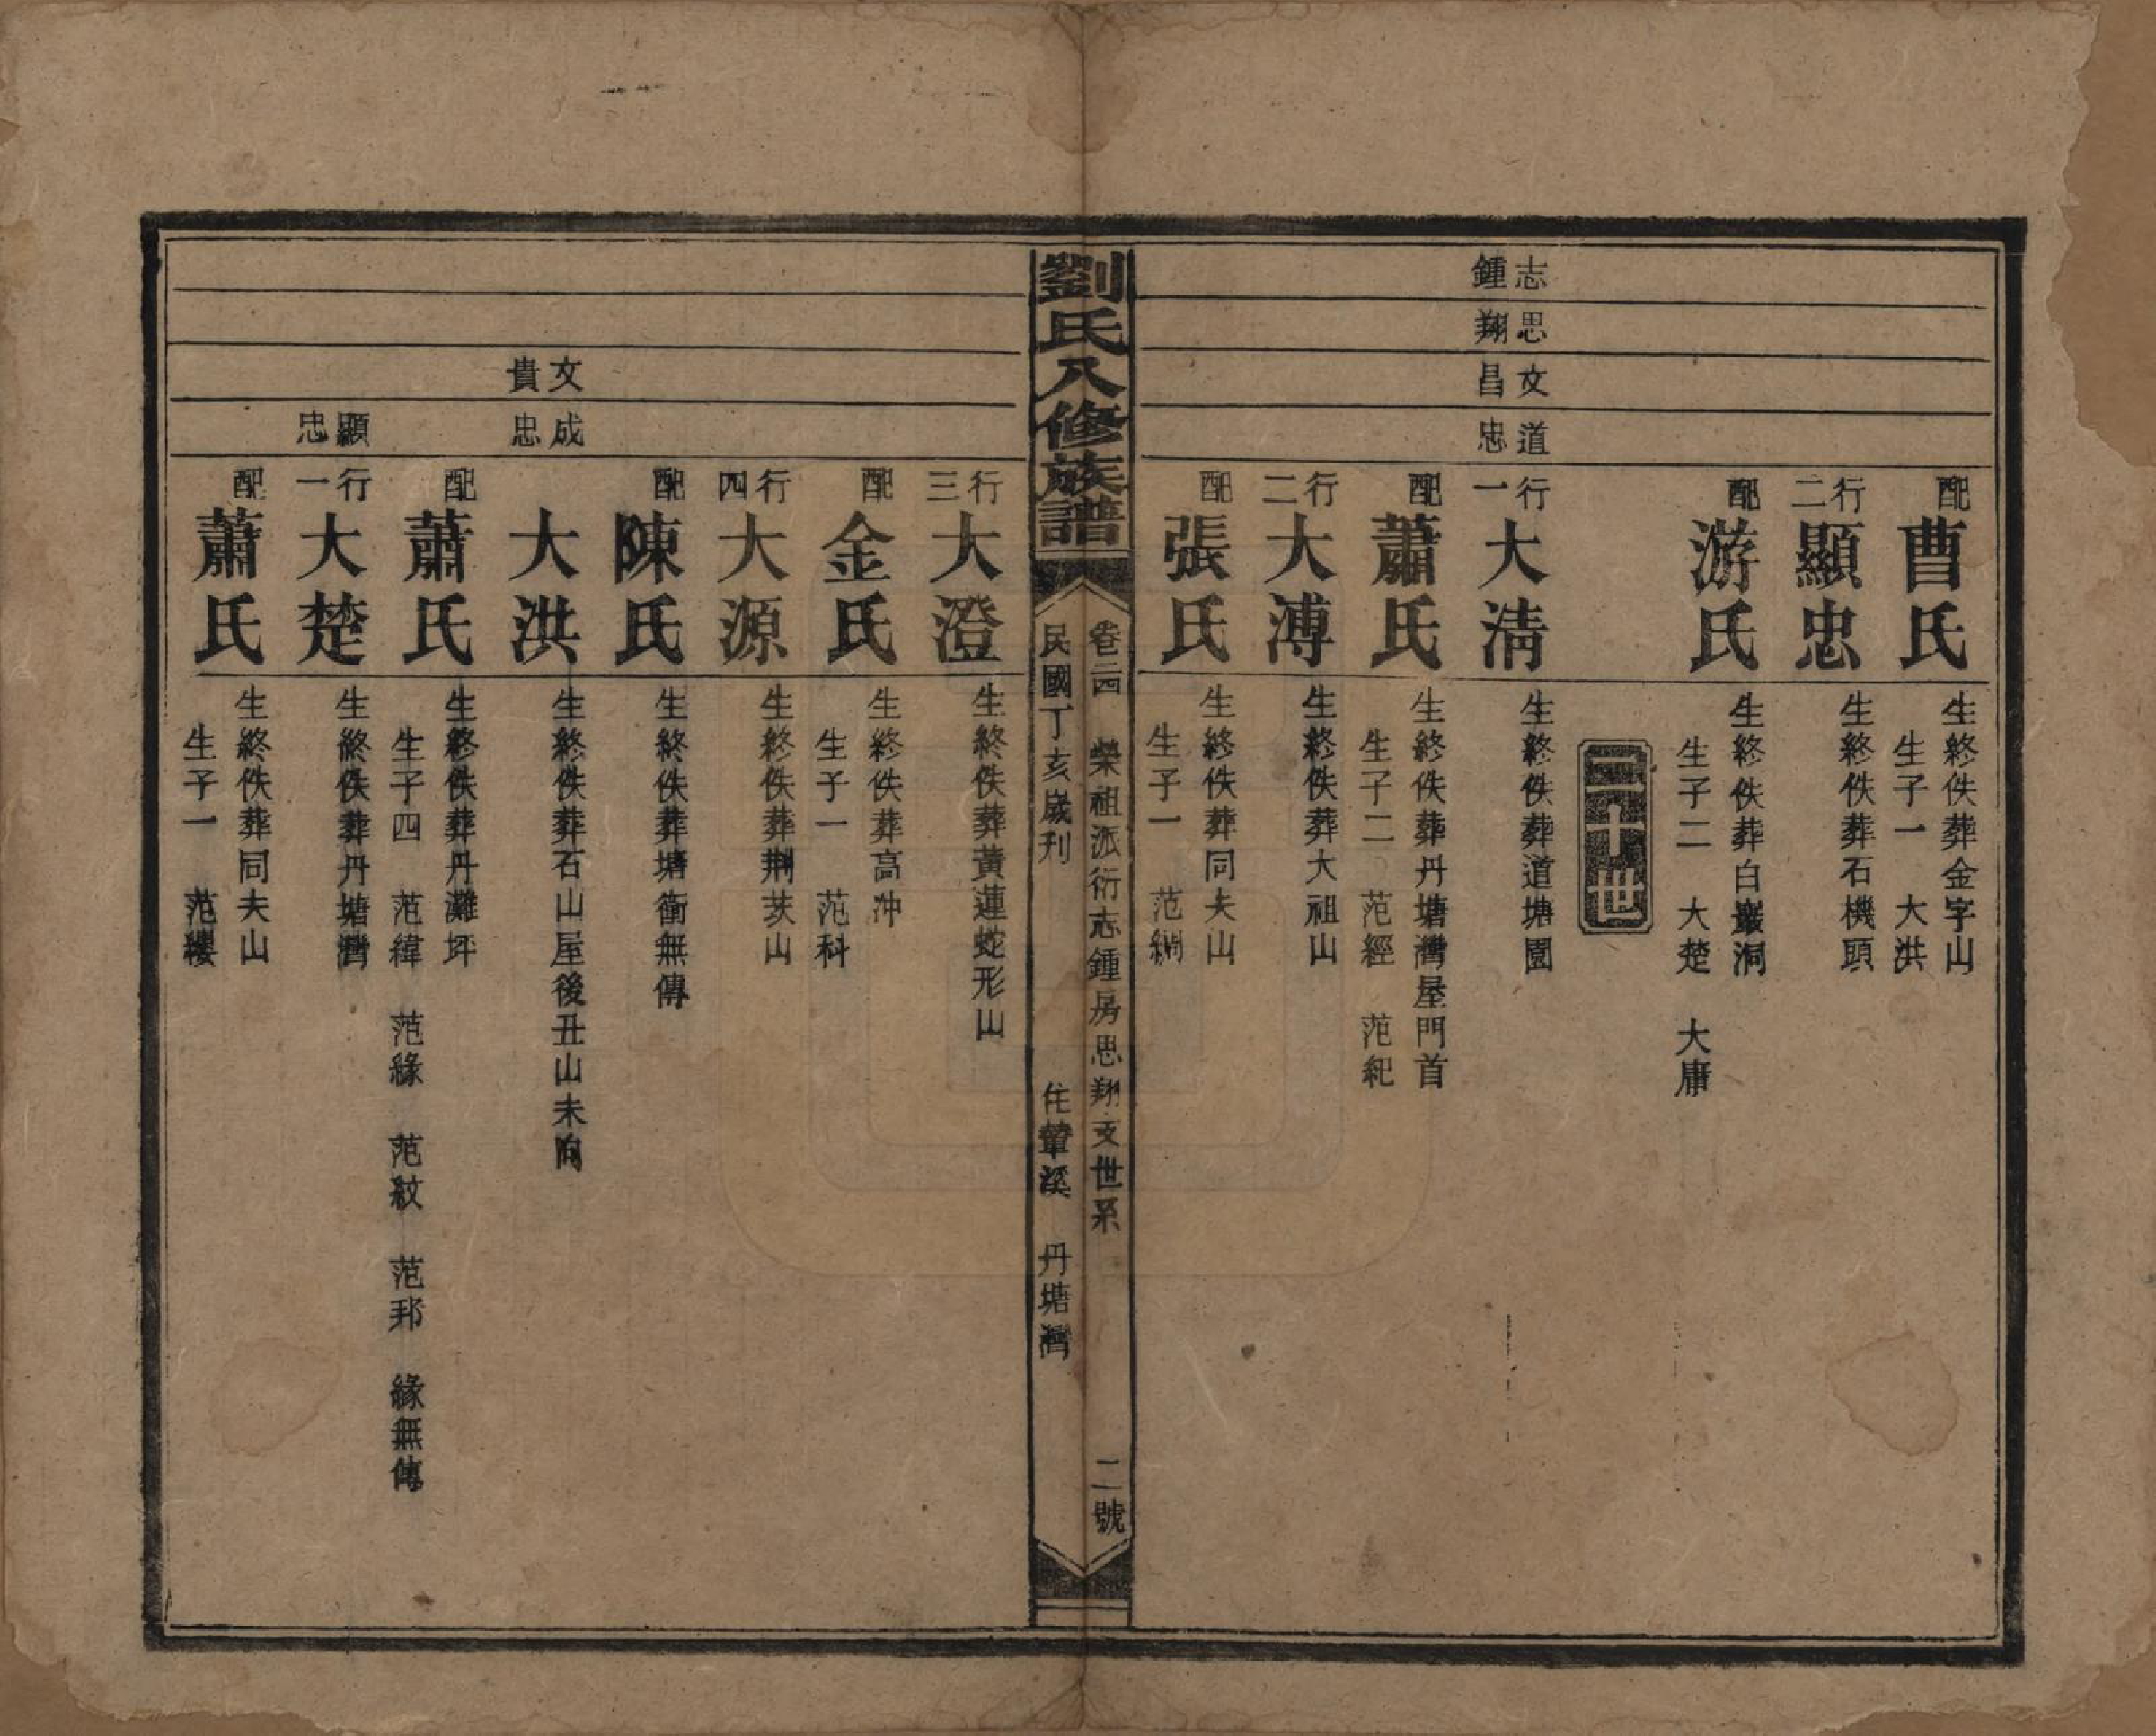 配
曹氏
生終佚葬金字山
生子一　大洪
行二
顯忠
生終佚葬石機頭
配
游氏
生終佚葬白巖洞
生子二　大楚　大庸
二十世
志鍾
思翔
文昌
道忠
行一
大清
生終佚葬道塘園
配
蕭氏
生終佚葬丹塘灣屋門首
生子二　范經　范紀
行二
大溥
生終佚葬大祖山
配
張氏
生終佚葬同夫山
生子一　范綱
劉氏八修族譜
卷二四　榮祖派衍志鍾房思翔文世系　二號
民國丁亥歲刋　住輋溪　丹塘灣
行三
大澄
生終佚葬黃蓮蛇形山
配
金氏
生終佚葬高冲
生子一　范科
行四
大源
生終佚葬荆茨山
配
陳氏
生終佚葬塘衝無傳
文貴
成忠
大洪
生終佚葬石山屋後丑山未向
配
蕭氏
生終佚葬丹灘坪
生子四　范緯　范緣　范紋　范邦　緣無傳
顯忠
行一
大楚
生終佚葬丹塘灣
配
蕭氏
生終佚葬同夫山
生子一　范縷